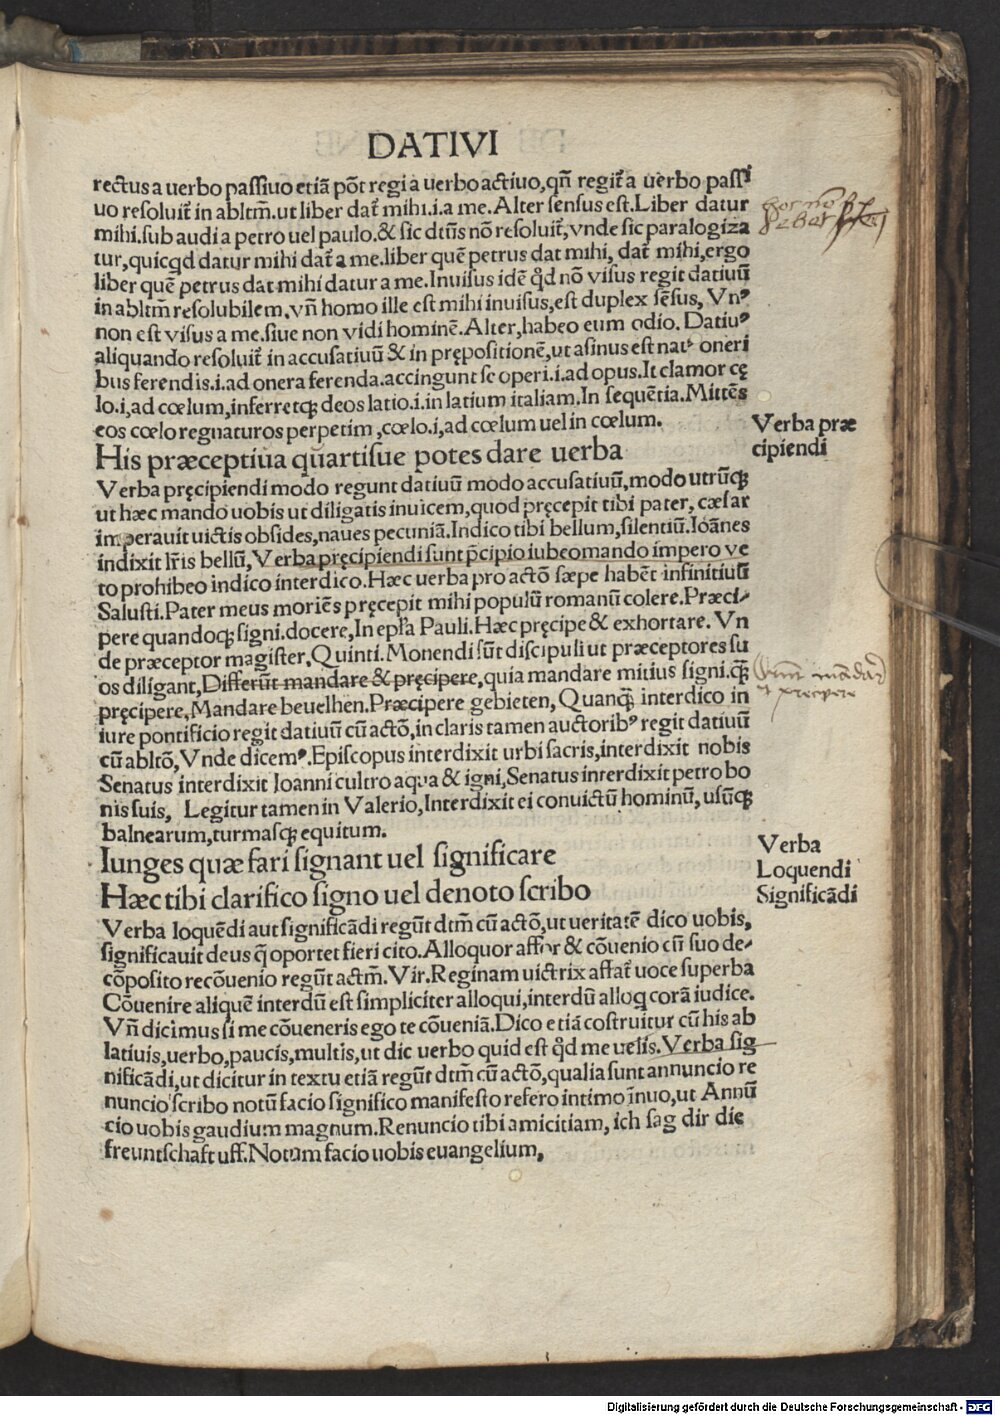 DATIVI
rectus a uerbo passiuo etiã põt regi a uerbo actiuo,qñ regit̃ a uerbo passi
uo resoluit̃ in abltm̃.ut liber dat̃ mihi.i.a me.Alter sensus est.Liber datur
mihi.sub audi a petro uel paulo.& sic dtũs nõ resoluit̃,vnde sic paralogiza
tur,quicqd datur mihi dat̃ a me.liber quẽ petrus dat mihi, dat̃ mihi,ergo
liber quẽ petrus dat mihi datur a me.Inuisus idẽ qd̃ nõ visus regit datiuũ
in abltm̃ resolubilem.vñ homo ille est mihi inuisus,est duplex sẽsus, Vnꝰ
non est visus a me.siue non vidi hominẽ.Alter,habeo eum odio. Datiuꝰ
aliquando resoluit̃ in accusatiuũ & in prępositionẽ,ut asinus est natꝰ oneri
bus ferendis.i.ad onera ferenda.accingunt se operi.i.ad opus.It clamor cę
lo.i,ad cœlum,inferretqꝫ deos latio.i.in latium italiam.In sequẽtia.Mittẽs
eos cœlo regnaturos perpetim,cœlo.i,ad cœlum uel in cœlum.
Verba præ
cipiendi
His præceptiua quartisue potes dare uerba
Verba pręcipiendi modo regunt datiuũ modo accusatiuũ,modo utrũqꝫ
ut hæc mando uobis ut diligatis inuicem,quod pręcepit tibi pater, cæsar
imperauit uictis obsides,naues pecuniã.Indico tibi bellum,silentiũ.Ioãnes
indixit lr̃is bellũ,Verba pręcipiendi sunt p̃cipio iubeo mando impero ve
to prohibeo indico interdico.Hæc uerba pro actõ sæpe habẽt infinitiuũ
Salusti.Pater meus moriẽs pręcepit mihi populũ romanũ colere.Præci-
pere quandoqꝫ signi.docere,In epl̃a Pauli.Hæc pręcipe & exhortare. Vn
de præceptor magister,Quinti.Monendi sũt discipuli ut præceptores su
os diligant,Differũt mandare & pręcipere,quia mandare mitius signi.qꝫ̃
pręcipere,Mandare beuelhen.Præcipere gebieten, Quanqꝫ̃ interdico in
iure pontificio regit datiuũ cũ actõ,in claris tamen auctoribꝰ regit datiuũ
cũ abltõ,Vnde dicemꝰ.Episcopus interdixit urbi sacris,interdixit nobis
Senatus interdixit Ioanni cultro aqua & igni,Senatus interdixit petro bo
nis suis, Legitur tamen in Valerio,Interdixit ei conuictũ hominũ, usũqꝫ
balnearum,turmasqꝫ equitum.
Verba
Loquendi
Significãdi
Iunges quæ fari signant uel significare
Hæc tibi clarifico signo uel denoto scribo
Verba loquẽdi aut significãdi regũt dtm̃ cũ actõ,ut ueritatẽ dico uobis,
significauit deus q̃ oportet fieri cito.Alloquor affor & cõuenio cũ suo de-
cõposito recõuenio regũt actm̃.Vir.Reginam uictrix affat̃ uoce superba
Cõuenire aliquẽ interdũ est simpliciter alloqui,interdũ alloq corã iudice.
Vñ dicimus si me cõueneris ego te cõueniã.Dico etiã cõstruitur cũ his ab
latiuis,uerbo,paucis,multis,ut dic uerbo quid est qd̃ me uelis.Verba sig
nificãdi,ut dicitur in textu etiã regũt dtm̃ cũ actõ,qualia sunt annuncio re
nuncio scribo notũ facio significo manifesto refero intimo ĩnuo,ut Annũ
cio uobis gaudium magnum.Renuncio tibi amicitiam, ich sag dir die
freuntschaft uff.Notum facio uobis euangelium,
Digitalisierung gefördert durch die Deutsche Forschungsgemeinschaft - DFG